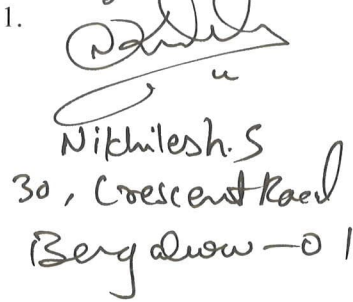 1.
Nikhilesh.S
30, Crescent Road
Bengaluru - 01